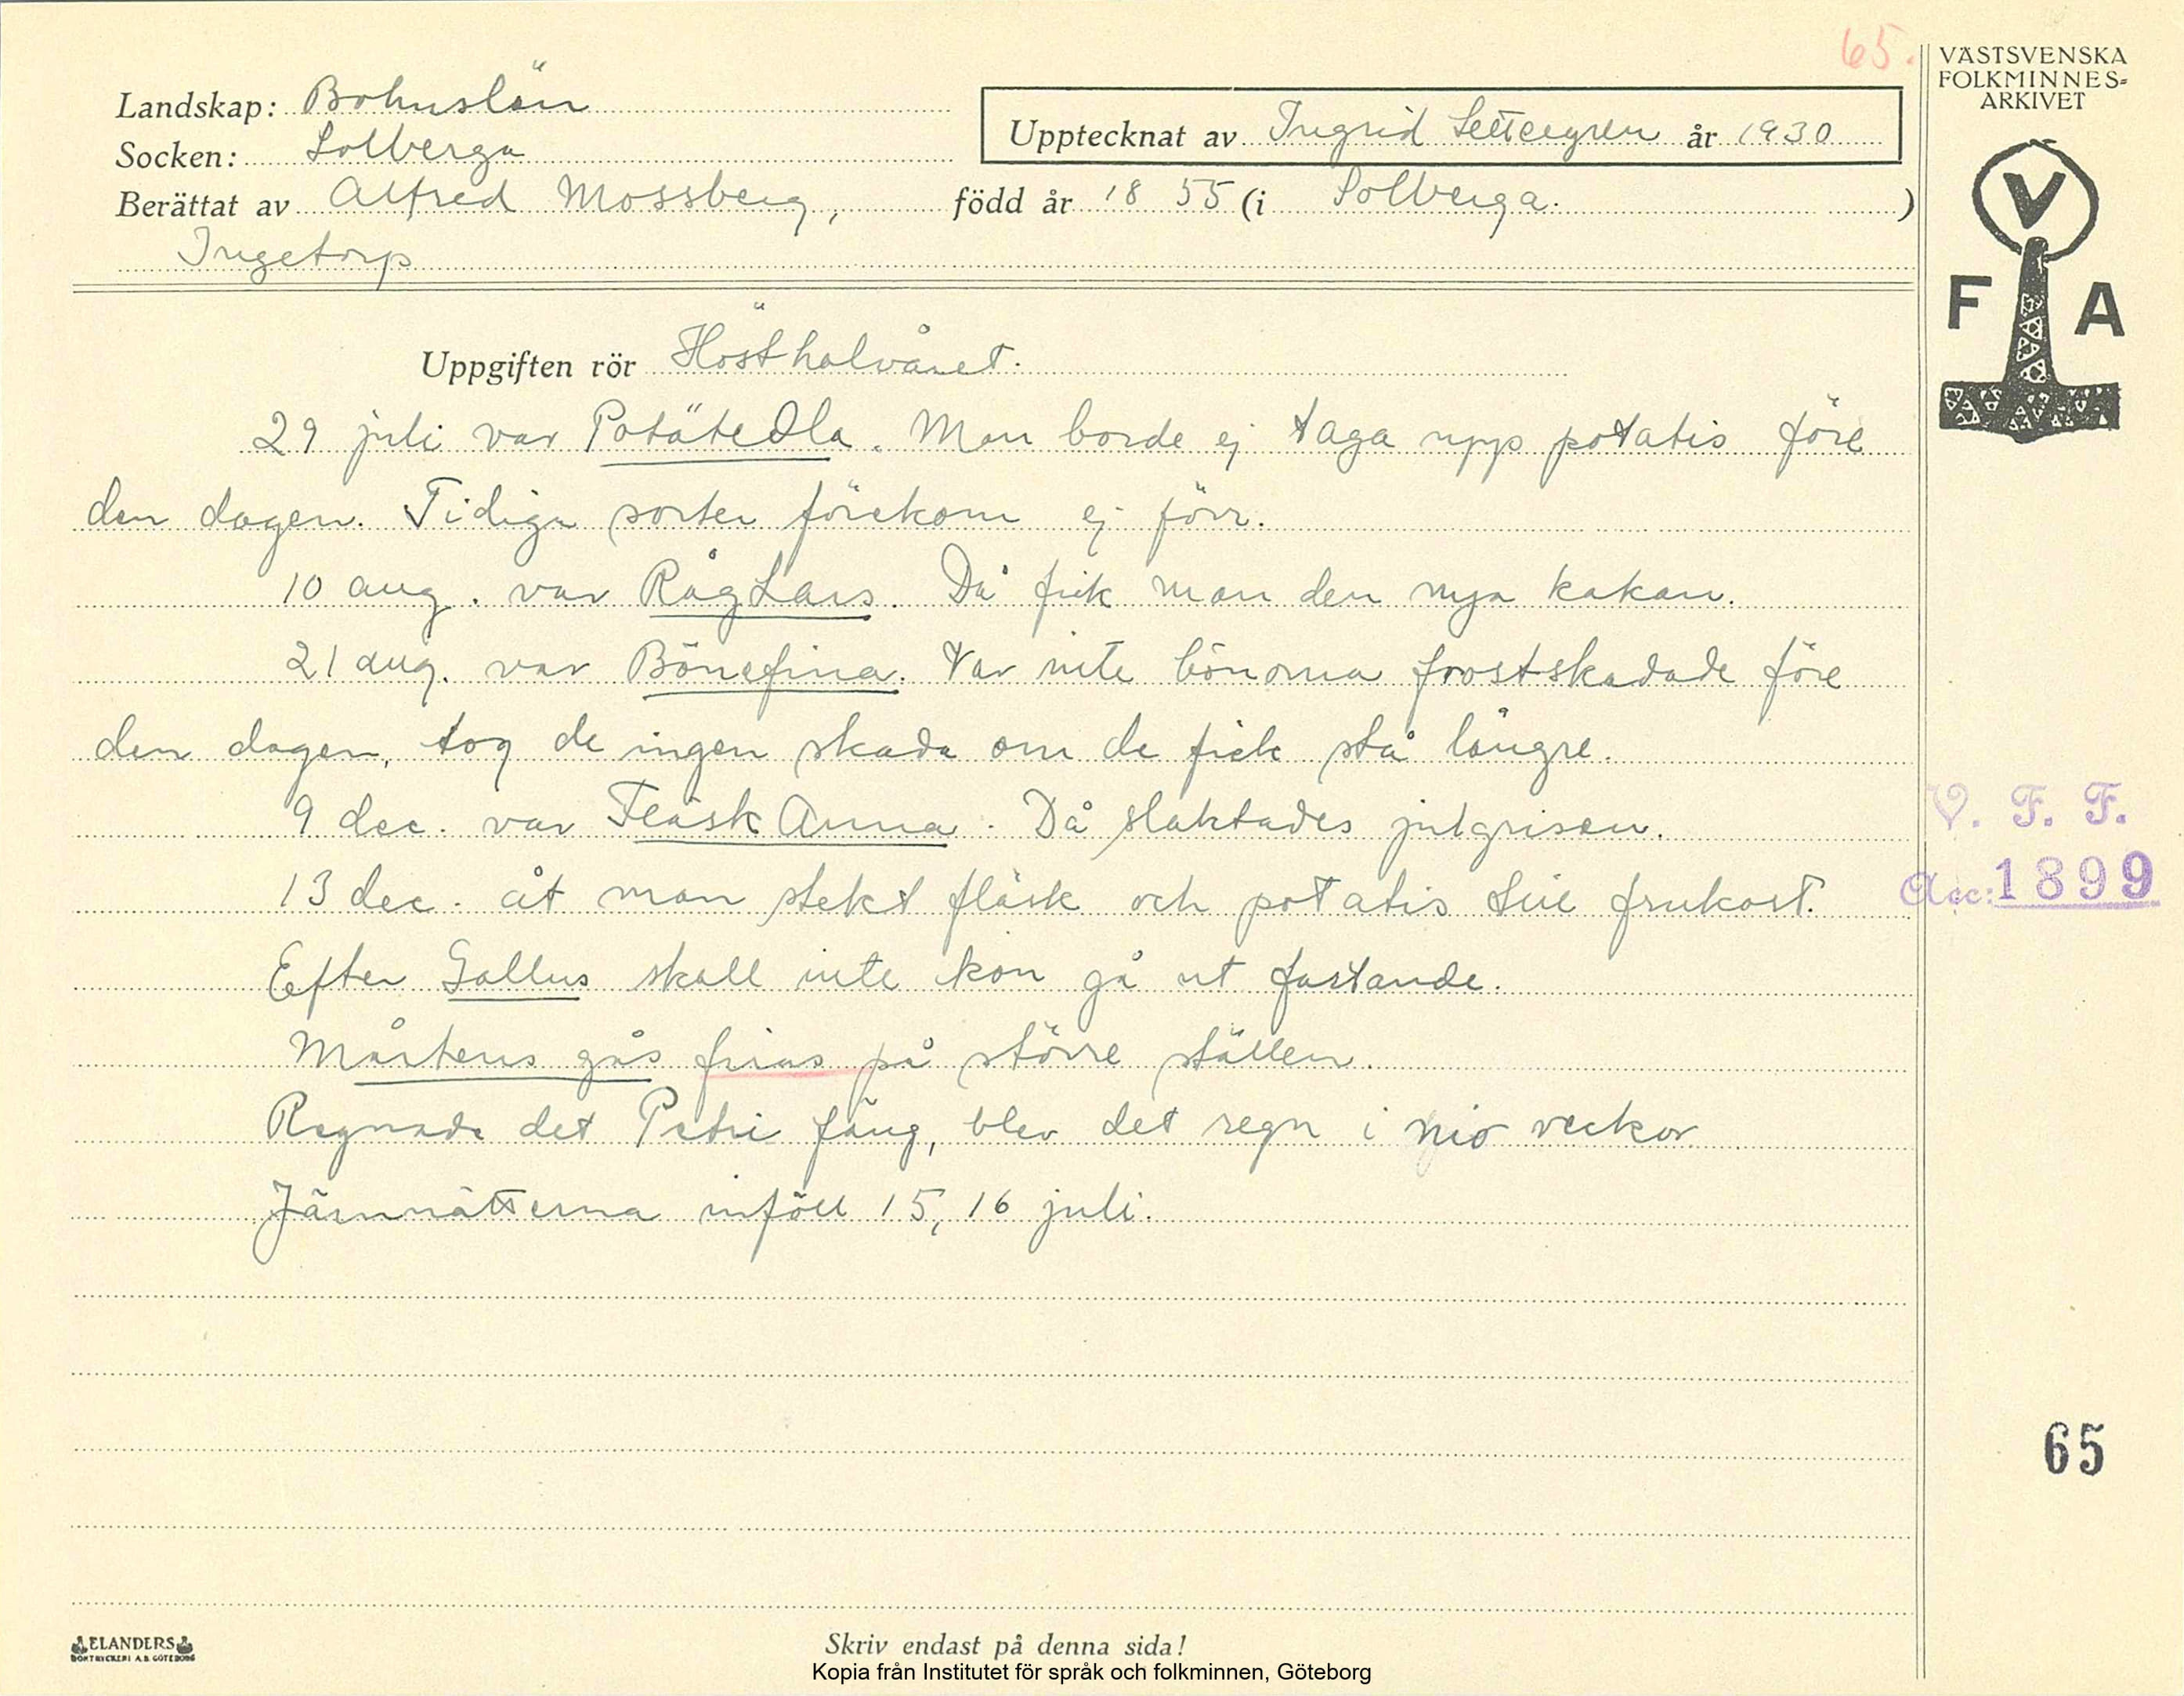 65.
VÄSTSVENSKA
FOLKMINNES-
ARKIVET
Landskap: Bohuslän
Upptecknat av Ingrid Settergren år 1930
Socken: Solberga
Berättat av Alfred Mossberg, född år 1855 (i Solberga. )
Ingetorp
V
F A
Uppgiften rör Hösthalvåret.
29 juli var PotäteOla. Man borde ej taga upp potatis före
den dagen. Tidiga sorter förekom ej förr.
10 aug. var RågLars. Då fick man den nya kakan.
21 aug. var Bönefina. Var inte bönorna frostskadade före
den dagen, tog de ingen skada om de fick stå längre.
9 dec. var FläskAnna. Då slaktades julgrisen.
13 dec. åt man stekt fläsk och potatis till frukost.
Efter Gallus skall inte kon gå ut fastande.
Mårtens gås firas på större ställen.
Regnade det Petri fäng, blev det regn i nio veckor
Järnnätterna inföll 15, 16 juli.
V. F. F.
Acc: 1899
65
ELANDERS
BOKTRYCKERI A.B. GÖTEBORG
Skriv endast på denna sida!
Kopia från Institutet för språk och folkminnen, Göteborg